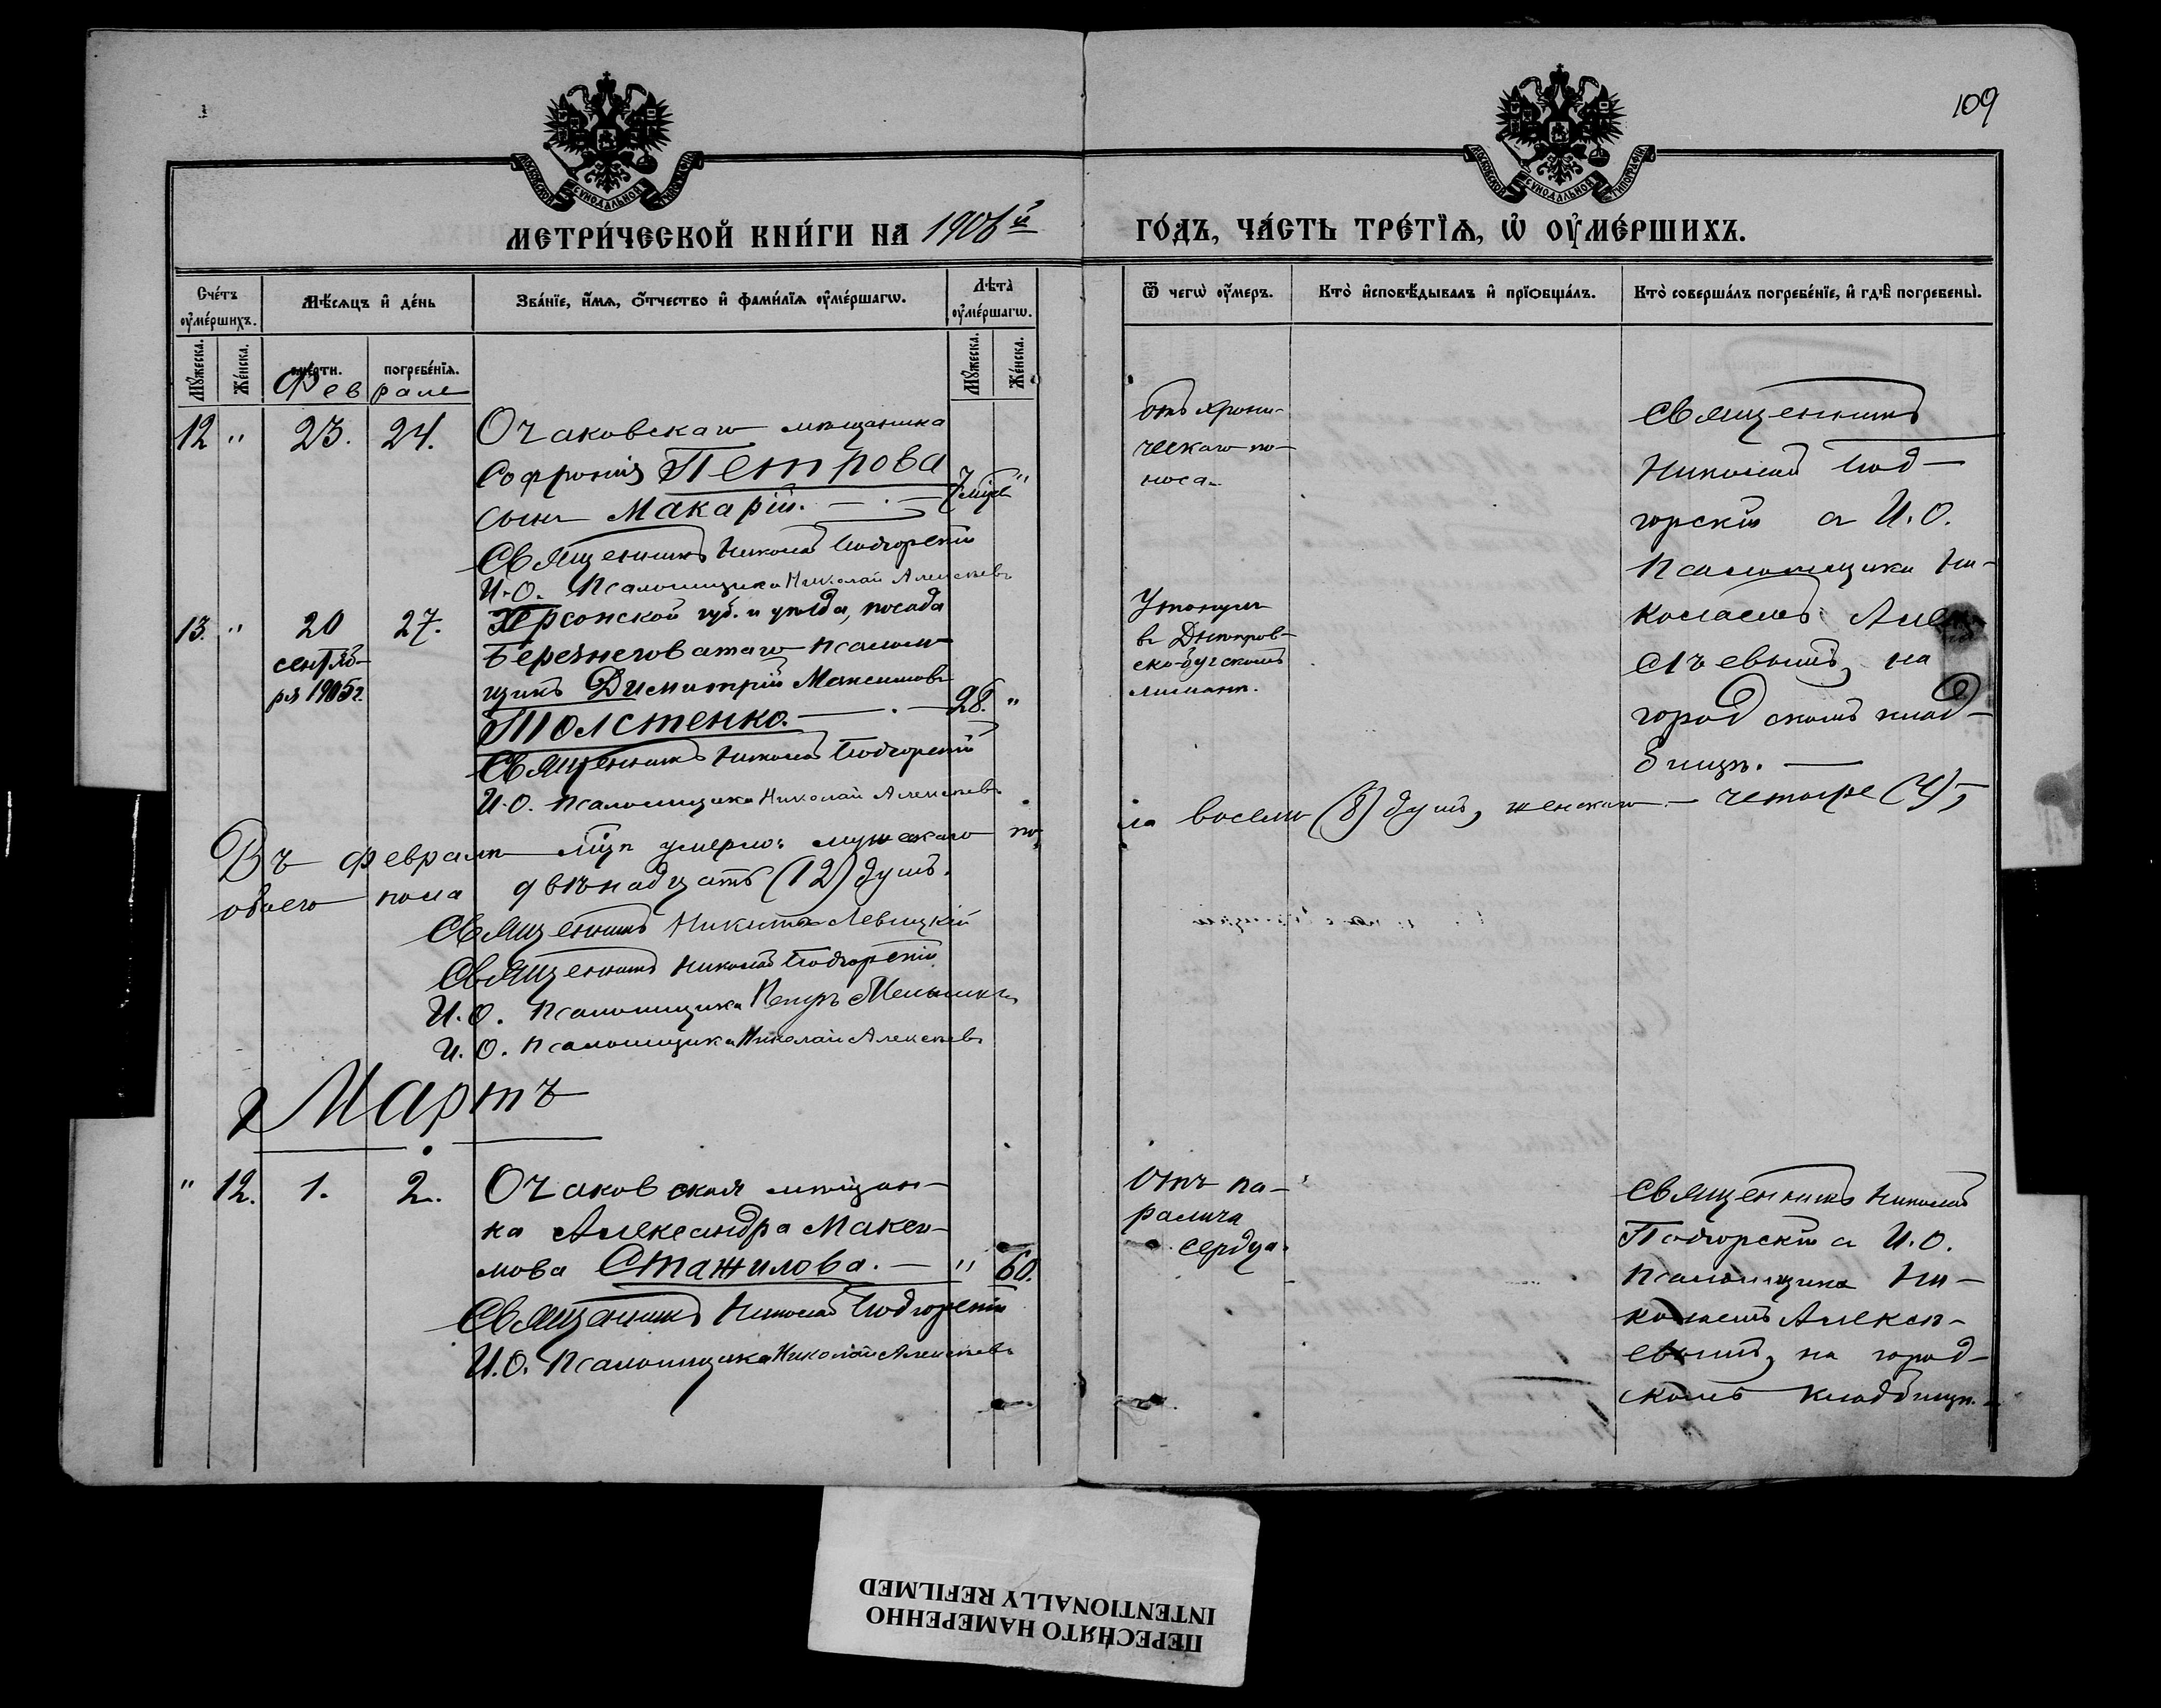 109
МОСКОВСКОЙ СѴНОДАЛЬНОЙ ТИПОГРАФІИ
МОСКОВСКОЙ СѴНОДАЛЬНОЙ ТИПОГРАФІИ
МЕТРИ́ЧЕСКОЙ КНИ́ГИ НА 1906й
ГО́ДЪ, ЧА́СТЬ ТРЕ́ТЇѦ, Ѡ҆ ОУ҆МЕ́РШИХЪ.
Сче́тъ оу҆ме́ршихъ.
Мѣ́сѧцъ и҆ де́нь
Зва́нїе, и҆́мѧ, ѻ҆́тчество и҆ фами́лїѧ оу҆ме́ршагѡ.
Лѣ́та оу҆ме́ршагѡ.
Ѿ чегѡ̀ оу҆́меръ.
Кто̀ и҆сповѣ́дывалъ и҆ прїѡбща́лъ.
Кто̀ соверша́лъ погребе́нїе, и҆ гдѣ̀ погребены̀.
Мꙋ́жеска.
Же́нска.
сме́рти.
погребе́нїѧ.
Мꙋ́жеска.
Же́нска.
Феврале
12 " 23. 24.
Очаковскаго мѣщанина
Софронія Петрова
сынъ Макарій. — 7 мѣс. "
Священникъ Николай Подгорскій
И. О. Псаломщика Николай Алексѣевъ
отъ хрони-
ческаго по-
носа
Священникъ
Николай Под-
горскій съ И. О.
Псаломщика Ни-
колаемъ Алек-
сѣевымъ, на
городскомъ клад-
бищѣ. —
13. " 20
сентяб-
ря 1905г.
27.
Херсонской губ. и уѣзда, посада
Березнеговатаго псалом-
щикъ Димитрій Максимовъ
Толстенко. — 28. "
Священникъ Николай Подгорскій
И. О. псаломщика Николай Алексѣевъ
Утонулъ
въ Днѣпров-
ско-бугскомъ
лиманѣ.
Въ Февралѣ мѣсяцѣ умерло: мужскаго по-
ла восемь (8) душъ, женскаго — четыре (4),
обоего пола двѣнадцать (12) душъ.
Священникъ Никита Левицкій
Священникъ Николай Подгорскій
И. О. псаломщика Петръ Мельникъ
И. О. псаломщика Николай Алексѣевъ
Мартъ
" 12. 1. 2.
Очаковская мѣщан-
ка Александра Макси-
мова Стажилова. — " 60.
Священникъ Николай Подгорскій
И. О. псаломщика Николай Алексѣевъ
Отъ па-
ралича
сердца.
Священникъ Николай
Подгорскій съ И. О.
псаломщика Ни-
колаемъ Алексѣ-
евымъ, на город-
скомъ кладбищѣ.
ПЕРЕСНЯТО НАМЕРЕННО
INTENTIONALLY REFILMED